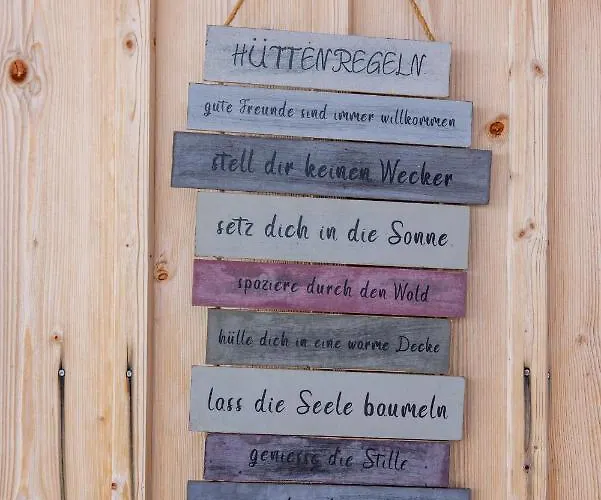 HÜTTENREGELN
gute Freunde sind immer willkommen
stell dir keinen Wecker
setz dich in die Sonne
spaziere durch den Wald
hülle dich in eine warme Decke
lass die Seele baumeln
geniesse die Stille